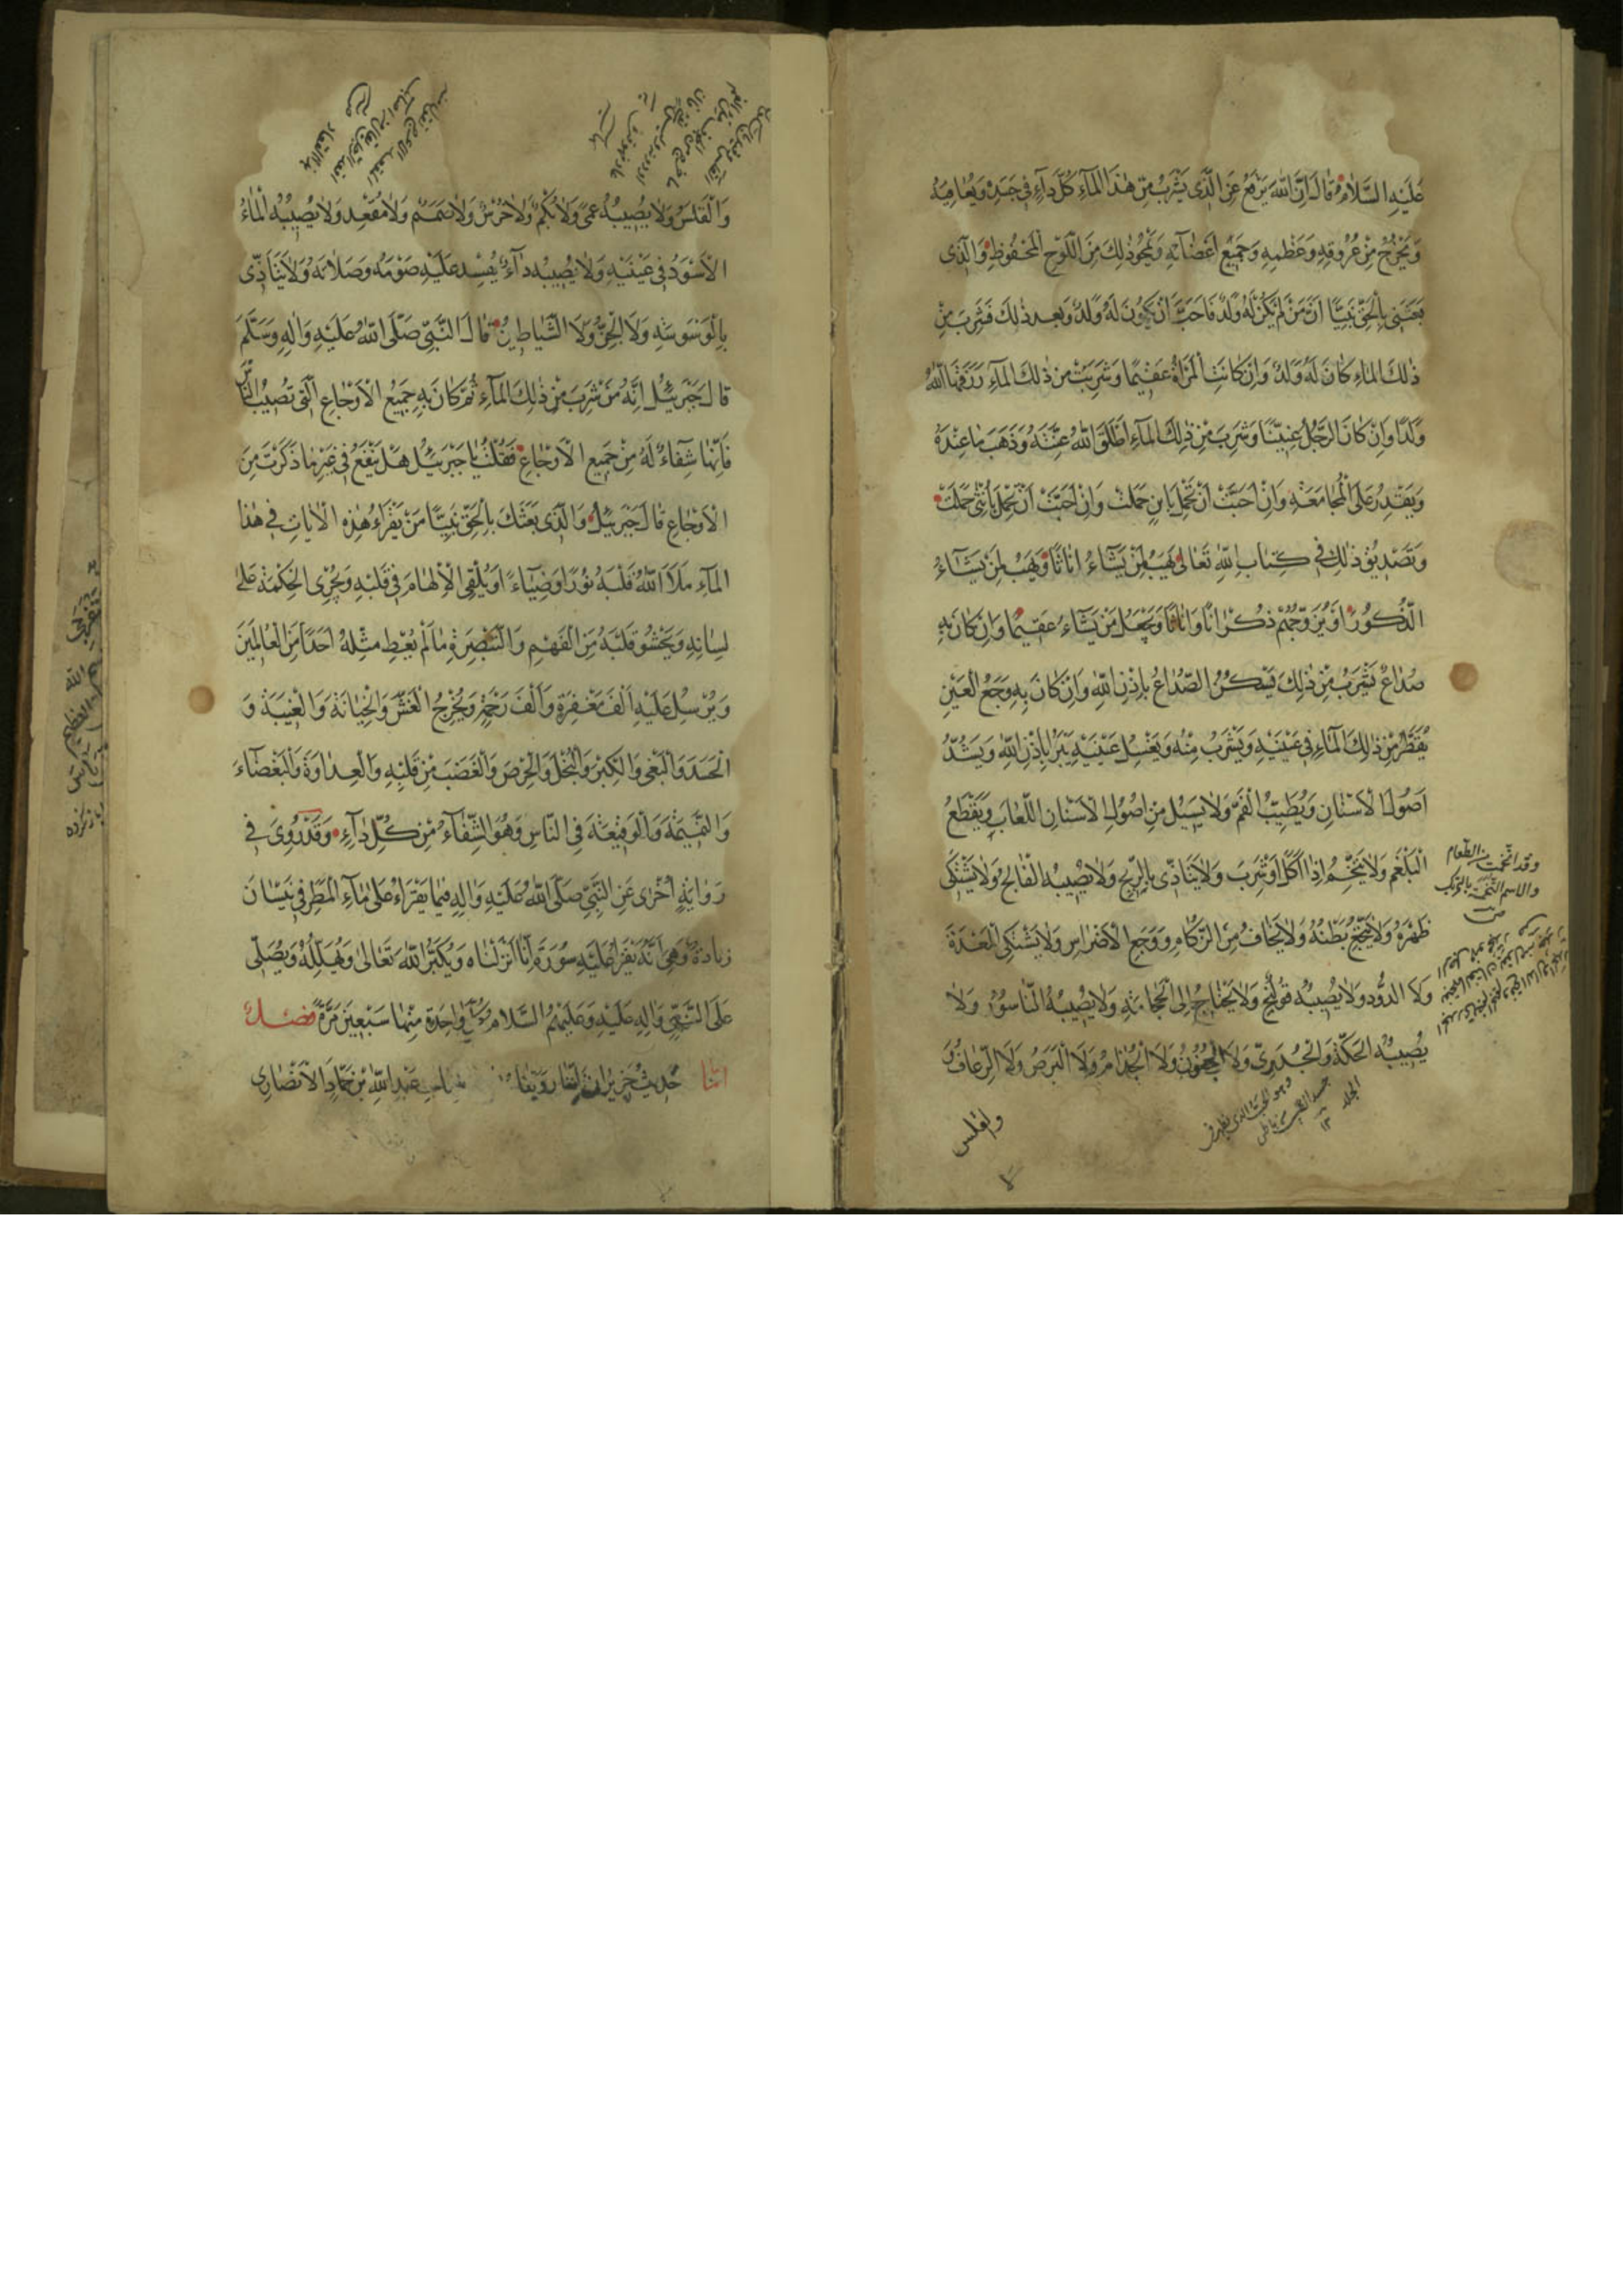 عَلَيْهِ السَّلَامُ قَالَ اِنَّ اللّٰهَ يَرْفَعُ عَنِ الَّذِى يَشْرَبُ مِنْ هٰذَا الْمَآءِ كُلَّ دَآءٍ فِى جَسَدِهِ وَيُعَافِيهِ
وَيَخْرُجُ مِنْ عُرُوقِهِ وَعَظْمِهِ وَجَمِيعِ اَعْضَآئِهِ وَيَمْحُو ذٰلِكَ مِنَ اللَّوْحِ الْمَحْفُوظِ وَالَّذِى
بَعَثَنِى بِالْحَقِّ نَبِيًّا اَنَّ مَنْ لَمْ يَكُنْ لَهُ وَلَدٌ فَاَحَبَّ اَنْ يَكُونَ لَهُ وَلَدٌ وَبَعْدَ ذٰلِكَ فَشَرِبَ مِنْ
ذٰلِكَ الْمَاءِ كَانَ لَهُ وَلَدٌ وَاِنْ كَانَتِ الْمَرْاَةُ عَقِيمًا وَشَرِبَتْ مِنْ ذٰلِكَ الْمَآءِ رَزَقَهَا اللّٰهُ
وَلَدًا وَاِنْ كَانَ الرَّجُلُ عِنِّينًا وَشَرِبَ مِنْ ذٰلِكَ الْمَآءِ اَطْلَقَ اللّٰهُ عِنَّتَهُ وَذَهَبَ مَا عِنْدَهُ
وَيَقْدِرُ عَلَى الْمُجَامَعَةِ وَاِنْ اَحَبَّتْ اَنْ تَحْمِلَ بِابْنٍ حَمَلَتْ وَاِنْ اَحَبَّتْ اَنْ تَحْمِلَ بِاُنْثٰى حَمَلَتْ
وَتَصْدِيقُ ذٰلِكَ فِى كِتَابِ اللّٰهِ تَعَالٰى يَهَبُ لِمَنْ يَشَآءُ اِنَاثًا وَيَهَبُ لِمَنْ يَشَآءُ
الذُّكُورَ اَوْ يُزَوِّجُهُمْ ذُكْرَانًا وَاِنَاثًا وَيَجْعَلُ مَنْ يَشَآءُ عَقِيمًا وَاِنْ كَانَ بِهِ
صُدَاعٌ يَشْرَبُ مِنْ ذٰلِكَ فَيَسْكُنُ الصُّدَاعُ بِاِذْنِ اللّٰهِ وَاِنْ كَانَ بِهِ وَجَعُ الْعَيْنِ
يُقَطِّرُ مِنْ ذٰلِكَ الْمَآءِ فِى عَيْنَيْهِ وَيَشْرَبُ مِنْهُ وَيَغْسِلُ عَيْنَيْهِ يَبْرَأُ بِاِذْنِ اللّٰهِ وَيَشُدُّ
اُصُولَ الْاَسْنَانِ وَيُطَيِّبُ الْفَمَ وَلَا يَسِيلُ مِنْ اُصُولِ الْاَسْنَانِ اللُّعَابُ وَيَقْطَعُ
الْبَلْغَمَ وَلَا يَتَّخِمُ اِذَا اَكَلَ اَوْ شَرِبَ وَلَا يَتَاَذّٰى بِالرِّيحِ وَلَا يُصِيبُهُ الْفَالِجُ وَلَا يَشْتَكِى
ظَهْرَهُ وَلَا يَتَّجِعُ بَطْنُهُ وَلَا يَخَافُ مِنَ الزُّكَامِ وَوَجَعِ الْاَضْرَاسِ وَلَا يَشْتَكِى الْمَعِدَةَ
وَلَا الدُّودَ وَلَا يُصِيبُهُ قُولَنْجٌ وَلَا يَحْتَاجُ اِلَى الْحِجَامَةِ وَلَا يُصِيبُهُ النَّاسُورُ وَلَا
يُصِيبُهُ الْحِكَّةُ وَالْجُدَرِىُّ وَلَا الْجُنُونُ وَلَا الْجُذَامُ وَلَا الْبَرَصُ وَلَا الرُّعَافُ وَ
والقلس
وقد اتخمت من الطعام
والاسم التخمة بالتحريك
وَالْقَلَسُ وَلَا يُصِيبُهُ عَمًى وَلَا بَكَمٌ وَلَا خَرَسٌ وَلَا صَمَمٌ وَلَا مُقْعِدٌ وَلَا يُصِيبُهُ الْمَاءُ
الْاَسْوَدُ فِى عَيْنَيْهِ وَلَا يُصِيبُهُ دَآءٌ يُفْسِدُ عَلَيْهِ صَوْمَهُ وَصَلَاتَهُ وَلَا يَتَاَذّٰى
بِالْوَسْوَسَةِ وَلَا الْجِنِّ وَلَا الشَّيَاطِينِ قَالَ النَّبِىُّ صَلَّى اللّٰهُ عَلَيْهِ وَاٰلِهِ وَسَلَّمَ
قَالَ جَبْرَئِيلُ اِنَّهُ مَنْ شَرِبَ مِنْ ذٰلِكَ الْمَآءِ ثُمَّ كَانَ بِهِ جَمِيعُ الْاَوْجَاعِ الَّتِى تُصِيبُ النَّاسَ
فَاِنَّهَا شِفَآءٌ لَهُ مِنْ جَمِيعِ الْاَوْجَاعِ فَقُلْتُ يَا جَبْرَئِيلُ هَلْ يَنْفَعُ فِى غَيْرِ مَا ذَكَرْتَ مِنَ
الْاَوْجَاعِ قَالَ جَبْرَئِيلُ وَالَّذِى بَعَثَكَ بِالْحَقِّ نَبِيًّا مَنْ يَقْرَاُ هٰذِهِ الْاٰيَاتِ فِى هٰذَا
الْمَآءِ مَلَاَ اللّٰهُ قَلْبَهُ نُورًا وَضِيَآءً وَيُلْقِى الْاِلْهَامَ فِى قَلْبِهِ وَيُجْرِى الْحِكْمَةَ عَلٰى
لِسَانِهِ وَيَحْشُو قَلْبَهُ مِنَ الْفَهْمِ وَالتَّبْصِرَةِ مَا لَمْ يُعْطِ مِثْلَهُ اَحَدًا مِنَ الْعَالَمِينَ
وَيُرْسِلُ عَلَيْهِ اَلْفَ مَغْفِرَةٍ وَاَلْفَ رَحْمَةٍ وَيُخْرِجُ الْغِشَّ وَالْخِيَانَةَ وَالْغِيبَةَ وَ
الْحَسَدَ وَالْبَغْىَ وَالْكِبْرَ وَالْبُخْلَ وَالْحِرْصَ وَالْغَضَبَ مِنْ قَلْبِهِ وَالْعَدَاوَةَ وَالْبَغْضَآءَ
وَالنَّمِيمَةَ وَالْوَقِيعَةَ فِى النَّاسِ وَهُوَ الشِّفَآءُ مِنْ كُلِّ دَآءٍ وَقَدْ رُوِىَ فِى
رِوَايَةٍ اُخْرٰى عَنِ النَّبِىِّ صَلَّى اللّٰهُ عَلَيْهِ وَاٰلِهِ فِيمَا يَقْرَاُ عَلٰى مَآءِ الْمَطَرِ فِى نَيْسَانَ
زِيَادَةٌ وَهِىَ اَنَّهُ يَقْرَاُ عَلَيْهِ سُورَةَ اِنَّا اَنْزَلْنَاهُ وَيُكَبِّرُ اللّٰهَ تَعَالٰى وَيُهَلِّلُهُ وَيُصَلِّى
عَلَى النَّبِىِّ وَاٰلِهِ عَلَيْهِ وَعَلَيْهِمُ السَّلَامُ كُلَّ وَاحِدَةٍ مِنْهَا سَبْعِينَ مَرَّةً فصل
اَمَّا حَدِيثُ حَزِيرَانَ رَوَيْنَا عَبْدِ اللّٰهِ بْنِ حَمَّادٍ الْاَنْصَارِىِّ